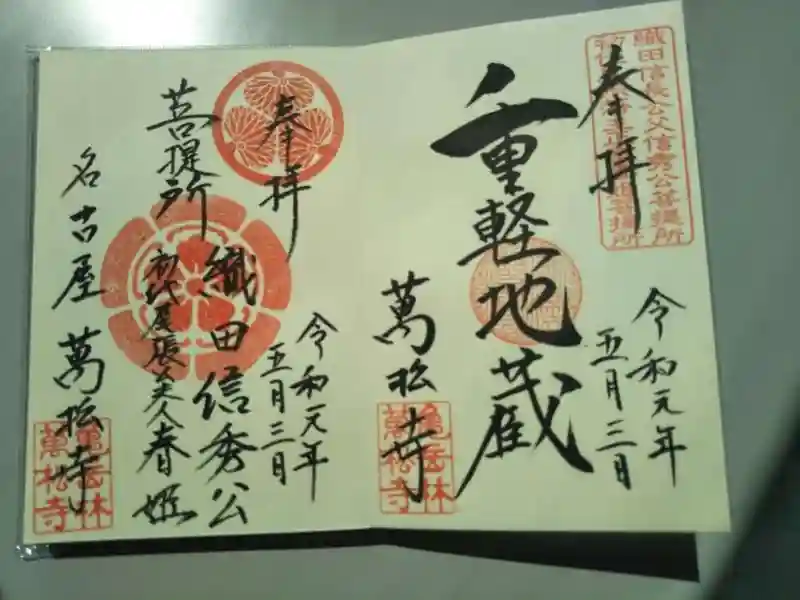 奉拝
織田信長公父信秀公菩提所
令和元年
五月三日
重軽地蔵
萬松寺
亀岳林
萬松寺
奉拝
令和元年
五月三日
織田信秀公
初代尾張藩主夫人春姫
菩提所
名古屋 萬松寺
亀岳林
萬松寺